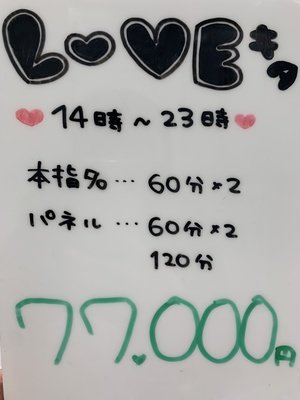 LOVEキタ
14時～23時
本指% … 60分×2
パネル … 60分×2
120分
77.000円